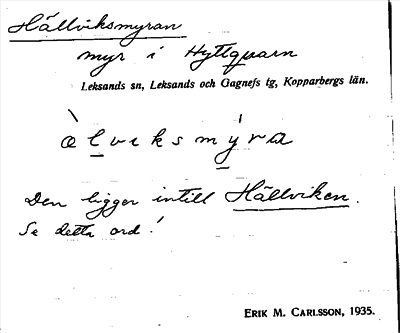 Hällviksmyran
myr i Hyttkvarn
Leksands sn, Leksands och Gagnefs tg, Kopparbergs län.
àlviksmýra
Den ligger intill Hällviken.
Se detta ord!
ERIK M. CARLSSON, 1935.